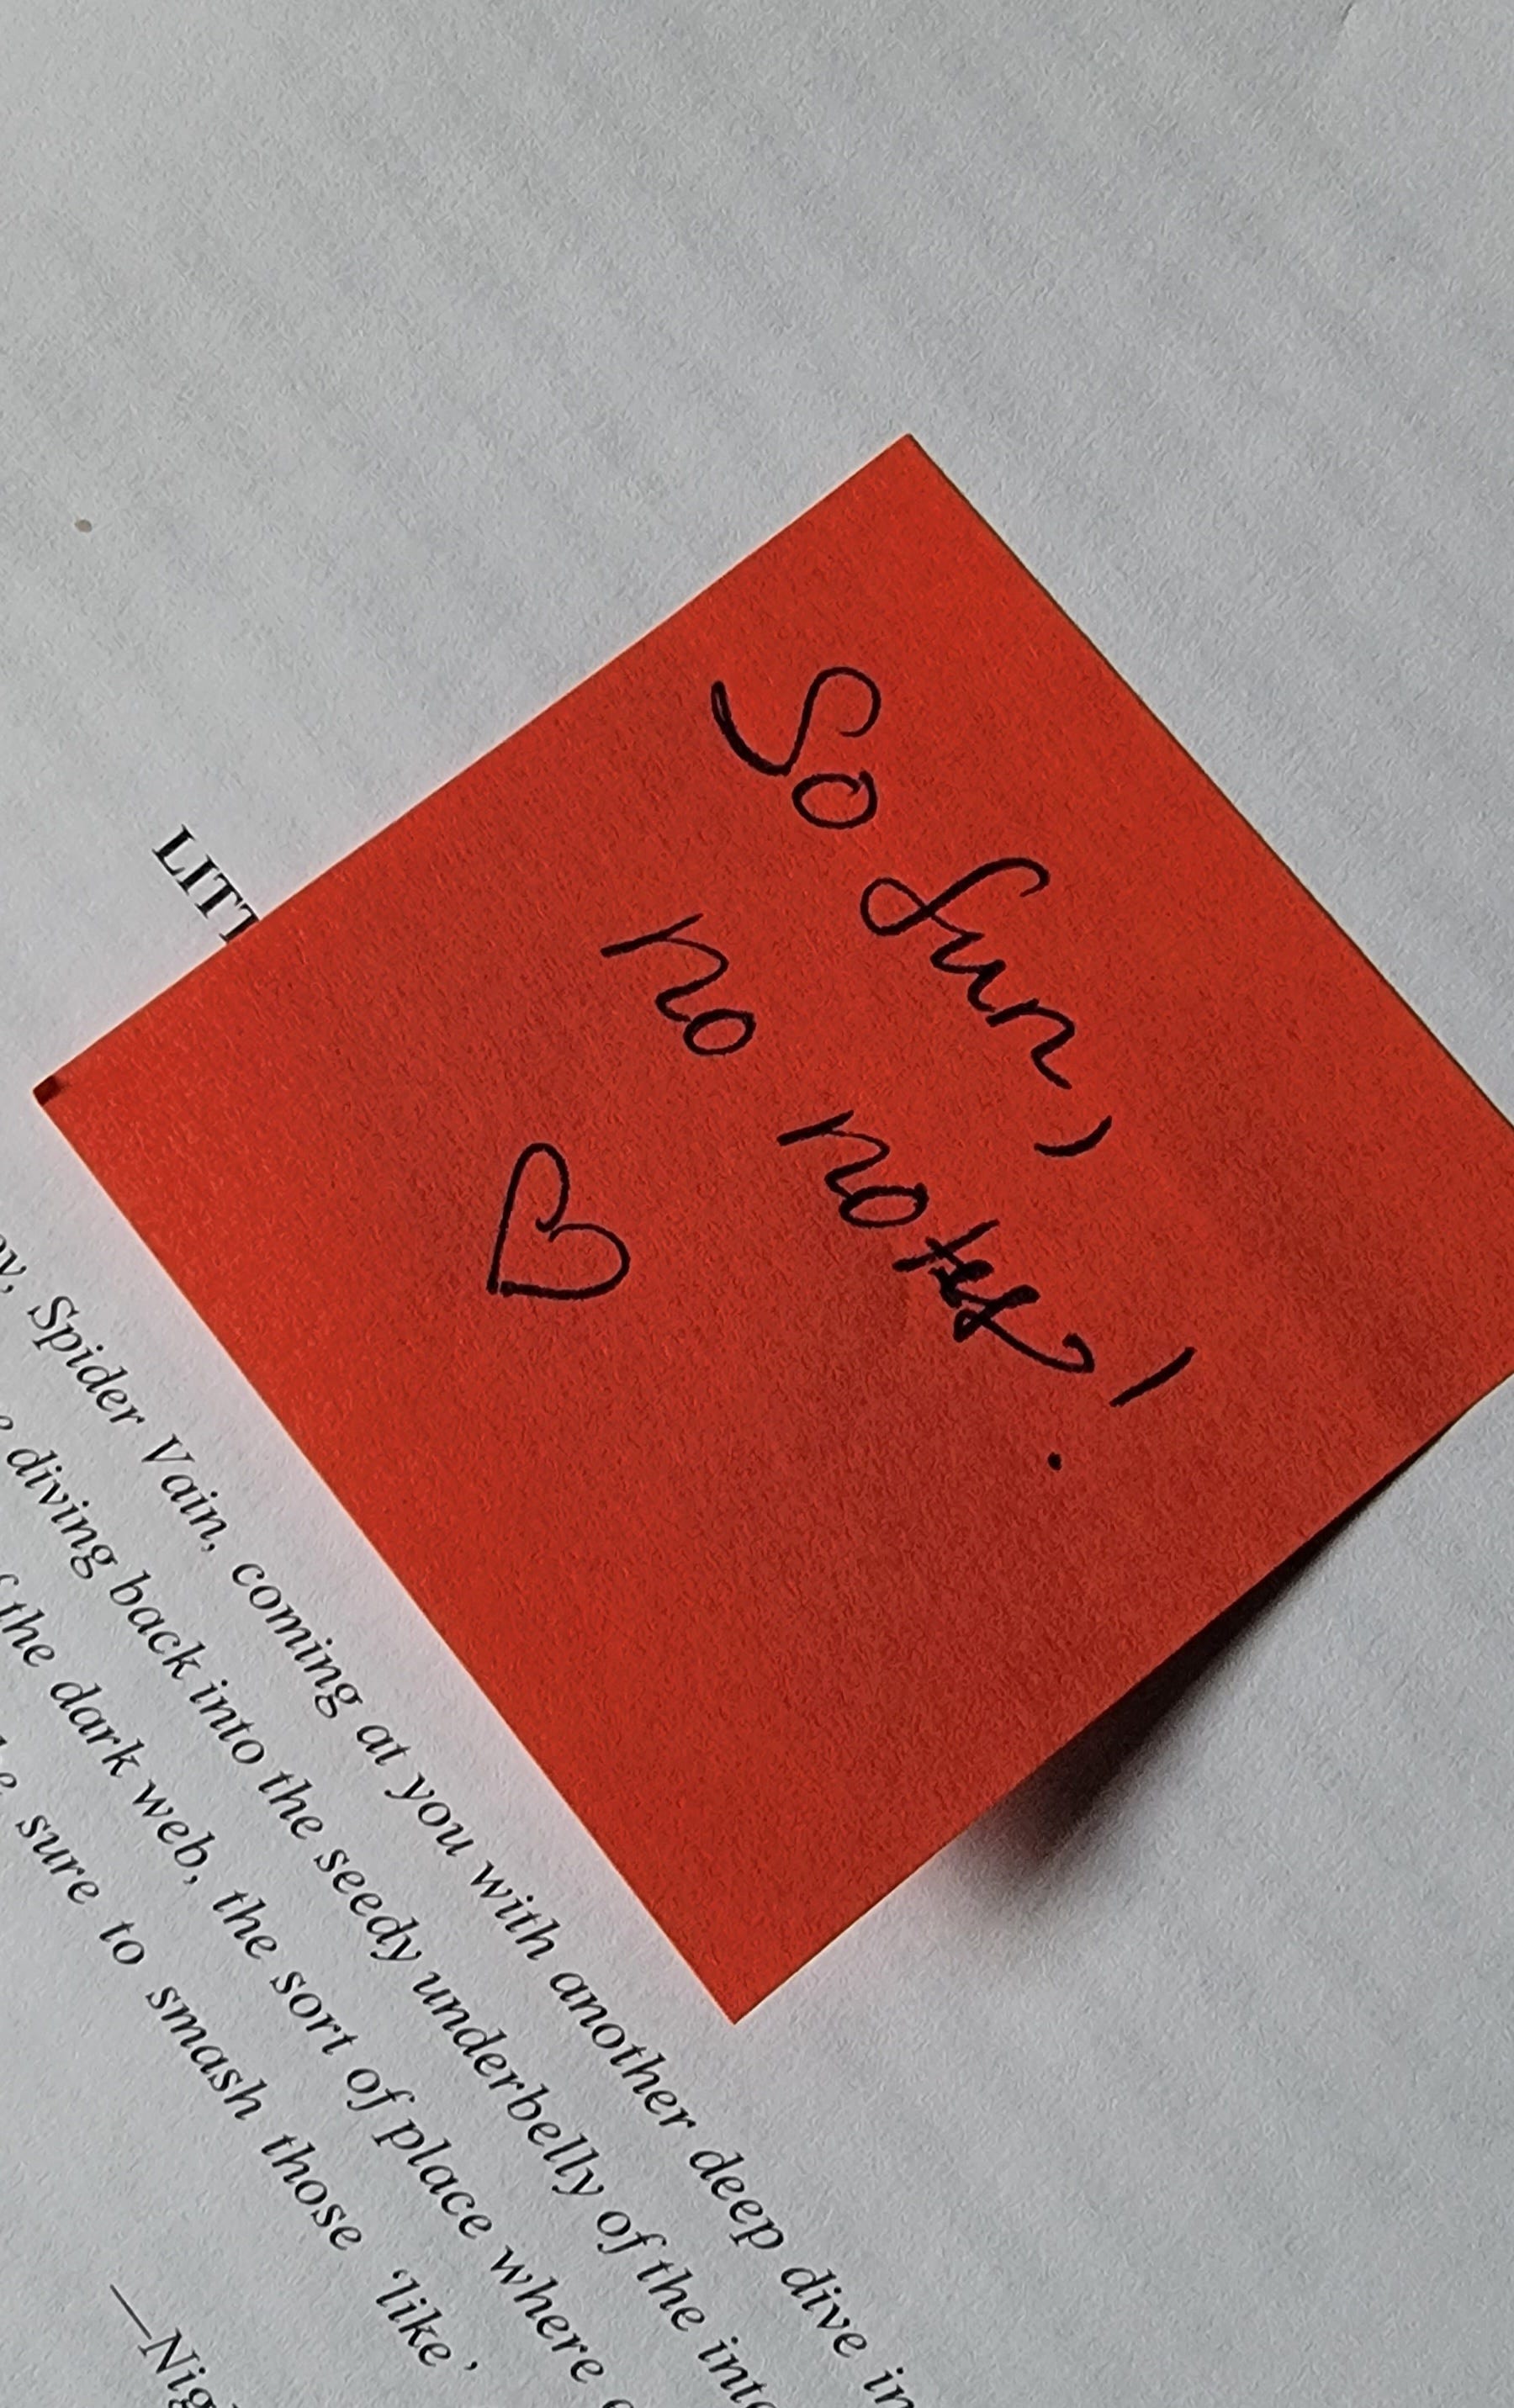 So fun,
no notes!
LITT
y, Spider Vain, coming at you with another deep dive in
e diving back into the seedy underbelly of the inte
f the dark web, the sort of place where
e sure to smash those ‘like’
—Nig